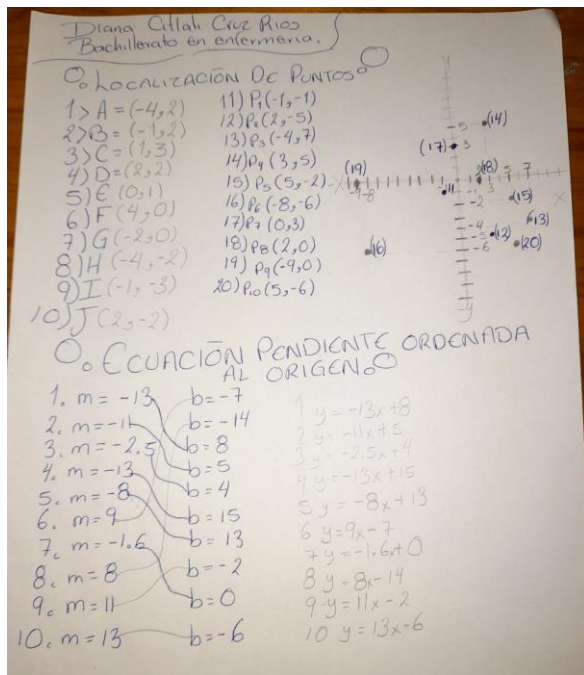 Diana Citlali Cruz Rios
Bachillerato en enfermeria.
LOCALIZACIÓN DE PUNTOS
1> A = (-4,2)
2>B = (-1,2)
3>C = (1,3)
4) D = (2,2)
5) E (0,1)
6) F (4,0)
7) G (-2,0)
8) H (-4,-2)
9) I (-1,-3)
10) J (2,-2)
11) P₁ (-1,-1)
12) P₂ (2,-5)
13) P₃ (-4,7)
14) P₄ (3,5)
15) P₅ (5,-2)
16) P₆ (-8,-6)
17) P₇ (0,3)
18) P₈ (2,0)
19) P₉ (-9,0)
20) P₁₀ (5,-6)
y
5 (14)
(17) 3
(19) (18)
-X -9 -8 -1 3 5 7 X
-11
-2 (15)
-4 (13)
-5 (12)
(16) -6 (20)
-y
ECUACIÓN PENDIENTE ORDENADA
AL ORIGEN
1. m = -13
2. m = -11
3. m = -2.5
4. m = -13
5. m = -8
6. m = 9
7. m = -1.6
8. m = 8
9. m = 11
10. m = 13
b = -7
b = -14
b = 8
b = 5
b = 4
b = 15
b = 13
b = -2
b = 0
b = -6
1 y = -13x+8
2 y = -11x+5
3 y = -2.5x+4
4 y = -13x+15
5 y = -8x+13
6 y = 9x-7
7 y = -1.6x+0
8 y = 8x-14
9 y = 11x-2
10 y = 13x-6